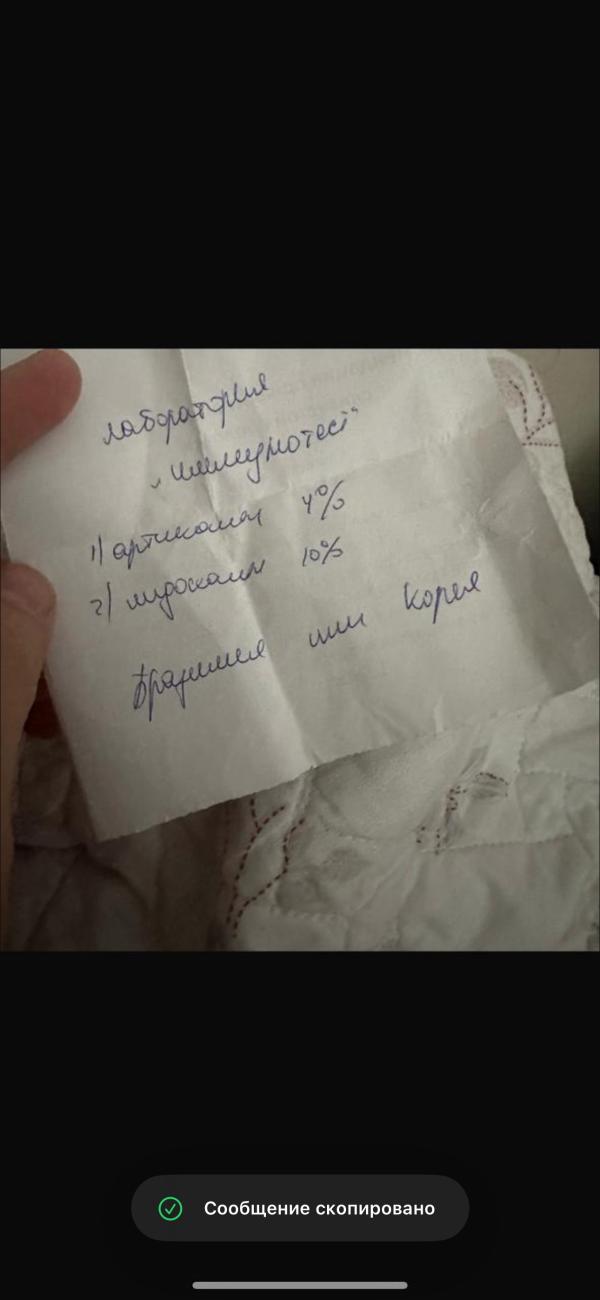 лаборатория
"Иммунотест"
1) артикаин 4%
2) лидокаин 10%
Бразилия или Корея
Сообщение скопировано